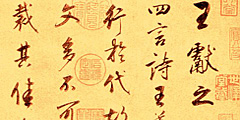 王獻之
四言詩王羲
行於代故
文多不可
裁其佳